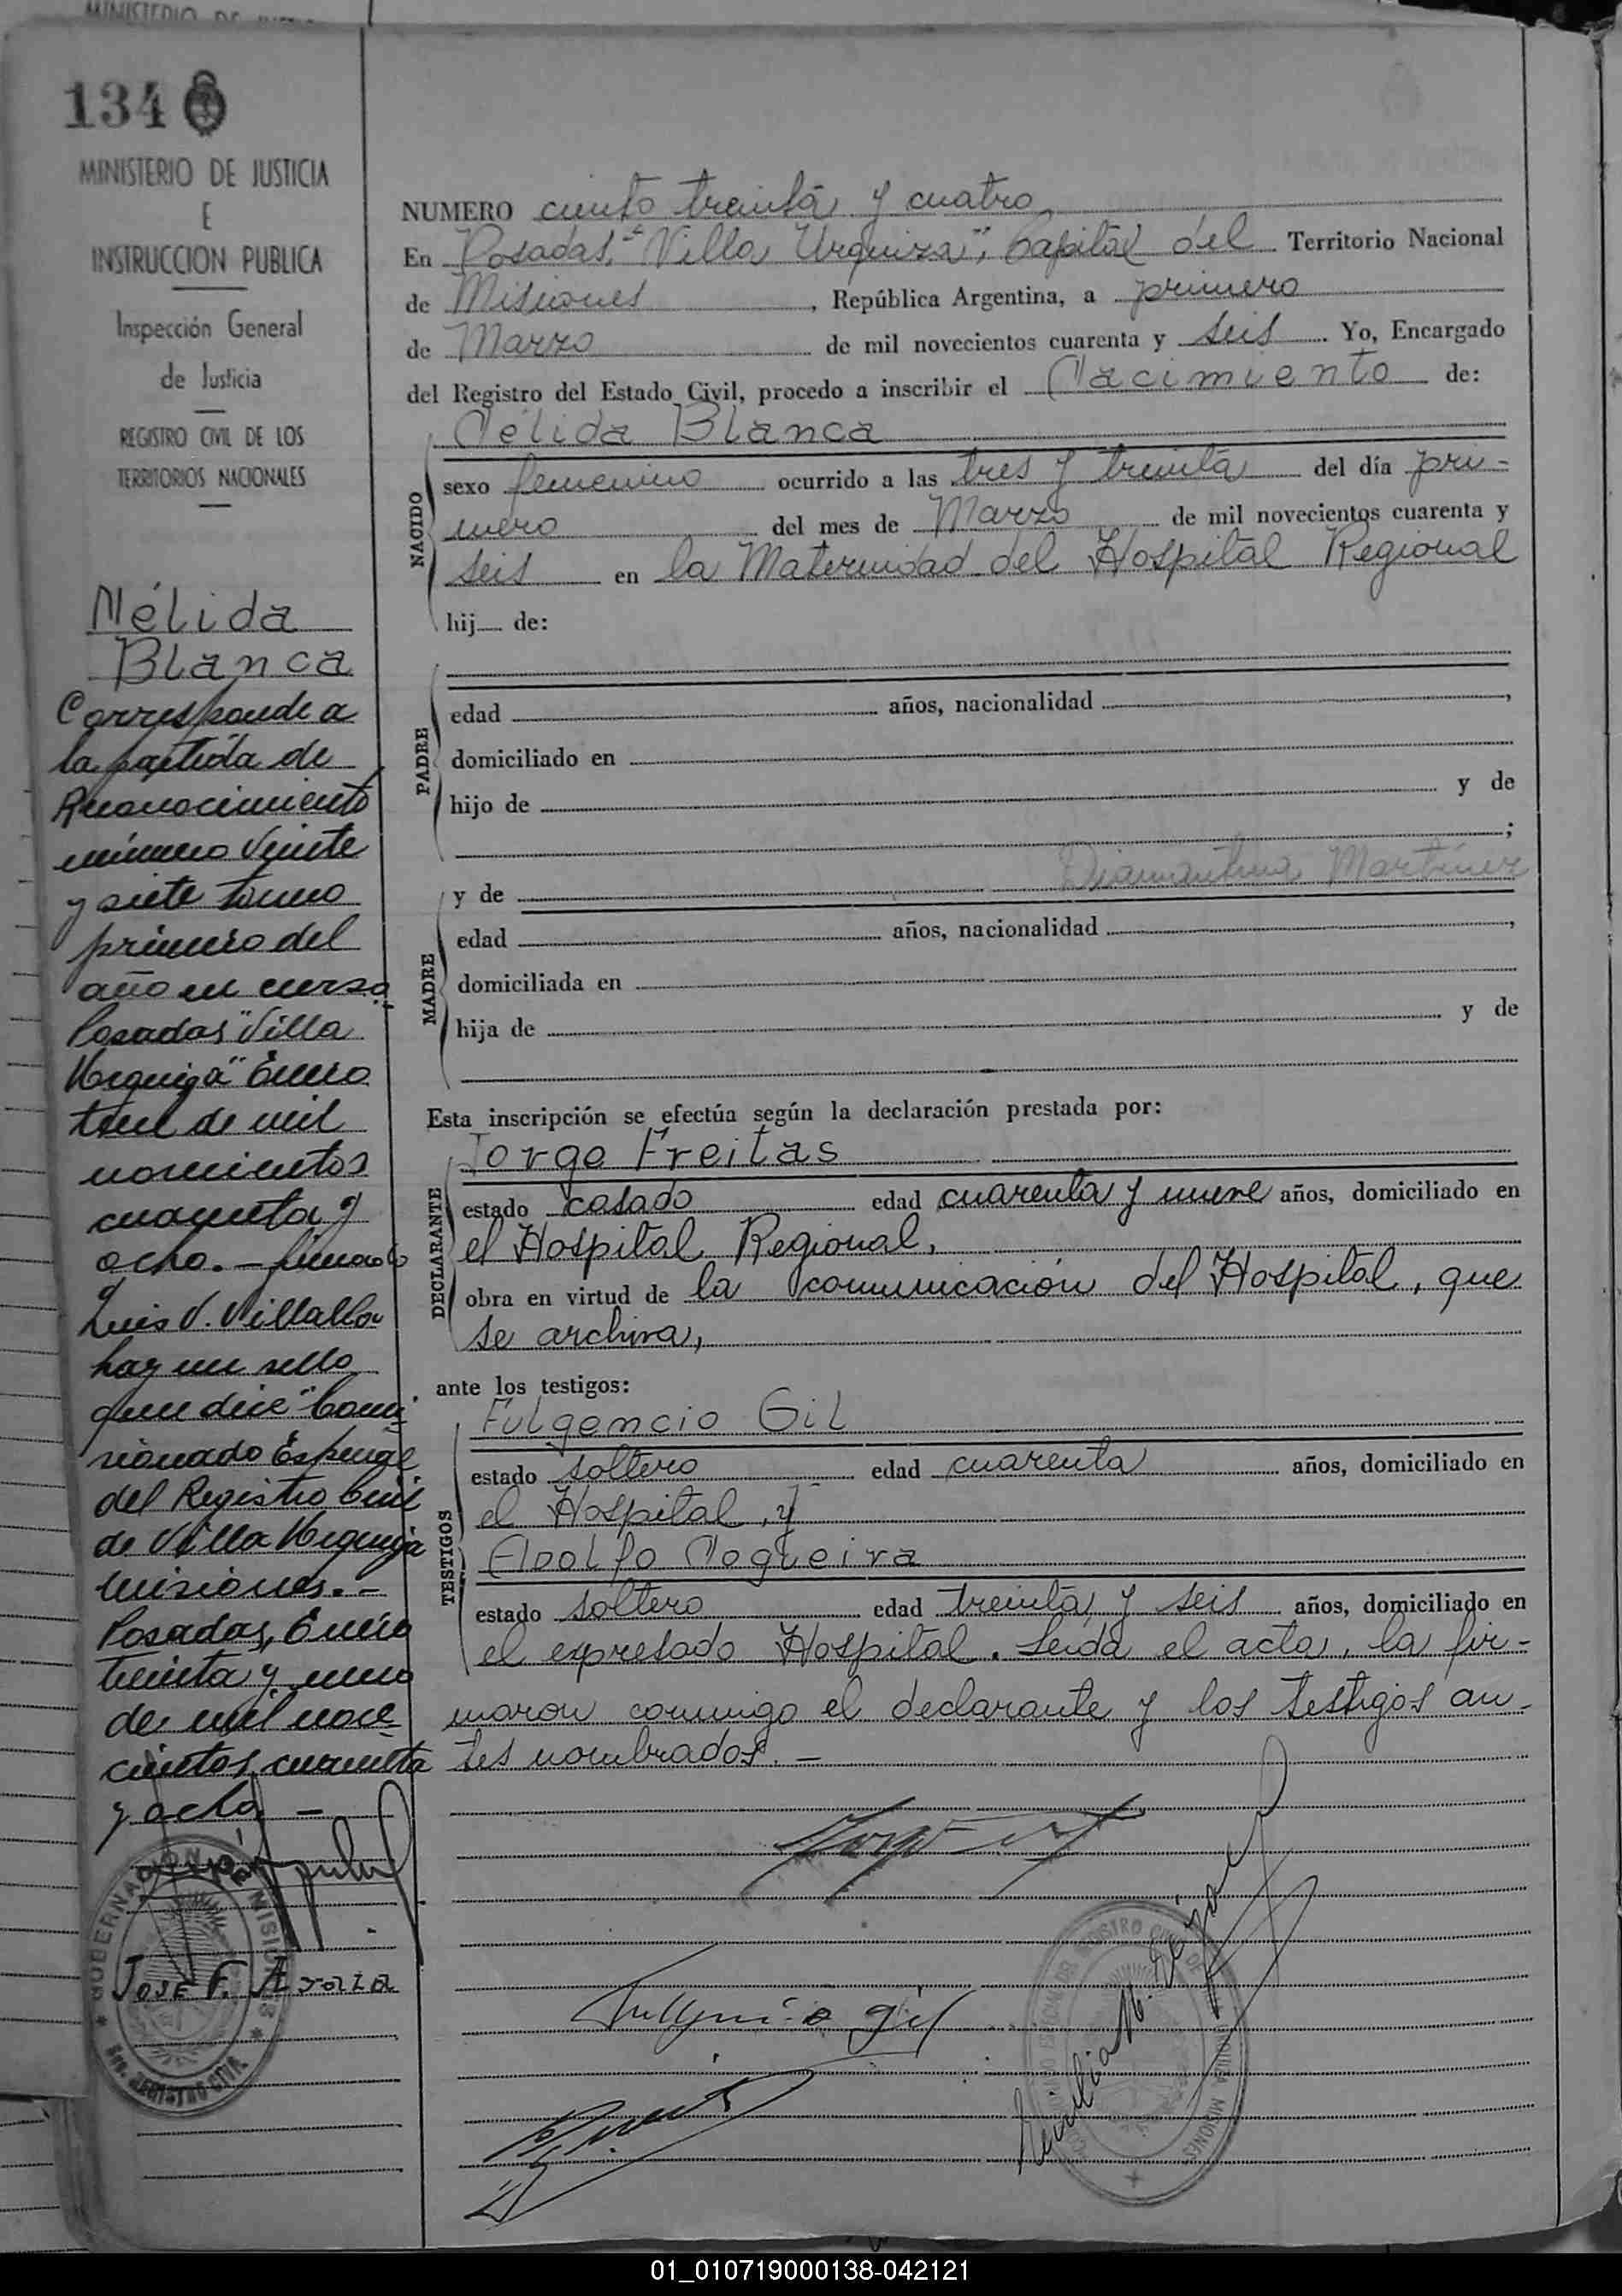 134
MINISTERIO DE JUSTICIA
E
INSTRUCCION PUBLICA
Inspección General
de Justicia
REGISTRO CIVIL DE LOS
TERRITORIOS NACIONALES
Nélida
Blanca
Corresponde a
la partida de
Reconocimiento
número veinte
y siete tomo
primero del
año en curso
Posadas "Villa
Urquiza" Enero
de mil
novecientos
cuarenta y
ocho. - firmado
Luis V. Villalba
hay un sello
que dice "Comi
sionado Especial
del Registro Civil
de Villa Urquiza
Misiones. -
Posadas, Enero
treinta y uno
de mil nove
cientos cuarenta
y ocho -
GOBERNACION MISIONES
JOSE F.
REGISTRO CIVIL
NUMERO ciento treinta y cuatro
En Posadas, "Villa Urquiza", Capital del Territorio Nacional
de Misiones , República Argentina, a primero
de Marzo de mil novecientos cuarenta y seis Yo, Encargado
del Registro del Estado Civil, procedo a inscribir el Nacimiento de:
NACIDO
Nélida Blanca
sexo femenino ocurrido a las tres y treinta del día pri-
mero del mes de Marzo de mil novecientos cuarenta y
seis en la Maternidad del Hospital Regional
hij de:
PADRE
edad años, nacionalidad ,
domiciliado en
hijo de y de
;
MADRE
y de Diamantina Martínez
edad años, nacionalidad ,
domiciliada en
hija de y de
Esta inscripción se efectúa según la declaración prestada por:
DECLARANTE
Jorge Freitas
estado casado edad cuarenta y nueve años, domiciliado en
el Hospital Regional,
obra en virtud de la comunicación del Hospital, que
se archiva,
ante los testigos:
TESTIGOS
Fulgencio Gil
estado soltero edad cuarenta años, domiciliado en
el Hospital, y
Adolfo Nogueira
estado soltero edad treinta y seis años, domiciliado en
el expresado Hospital. Leída el acta, la fir-
maron conmigo el declarante y los testigos an-
tes nombrados. -
Fulgencio Gil
01_010719000138-042121